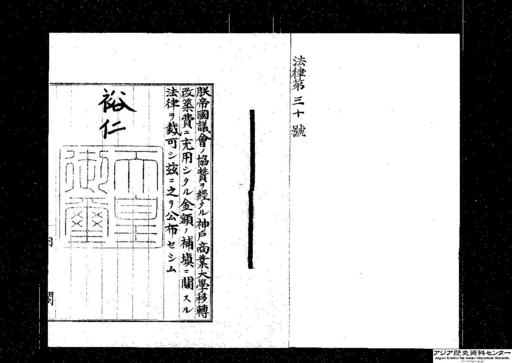 法律第三十號
朕帝國議會ノ協贊ヲ經タル神戸商業大學移轉
改築費ニ充用シタル金額ノ補塡ニ關スル
法律ヲ裁可シ茲ニ之ヲ公布セシム
裕仁
天皇
御璽
内閣
アジア歴史資料センター
Japan Center for Asian Historical Records